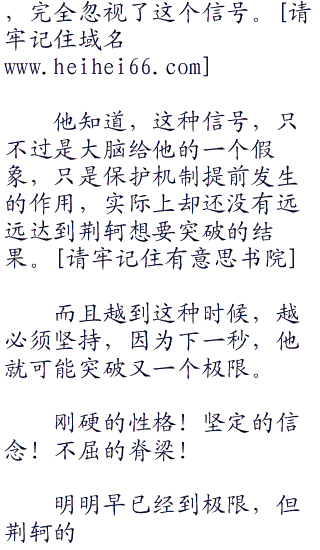 ，完全忽视了这个信号。[请
牢记住域名
www.heihei66.com]
他知道，这种信号，只
不过是大脑给他的一个假
象，只是保护机制提前发生
的作用，实际上却还没有远
远达到荆轲想要突破的结
果。[请牢记住有意思书院]
而且越到这种时候，越
必须坚持，因为下一秒，他
就可能突破又一个极限。
刚硬的性格！坚定的信
念！不屈的脊梁！
明明早已经到极限，但
荆轲的